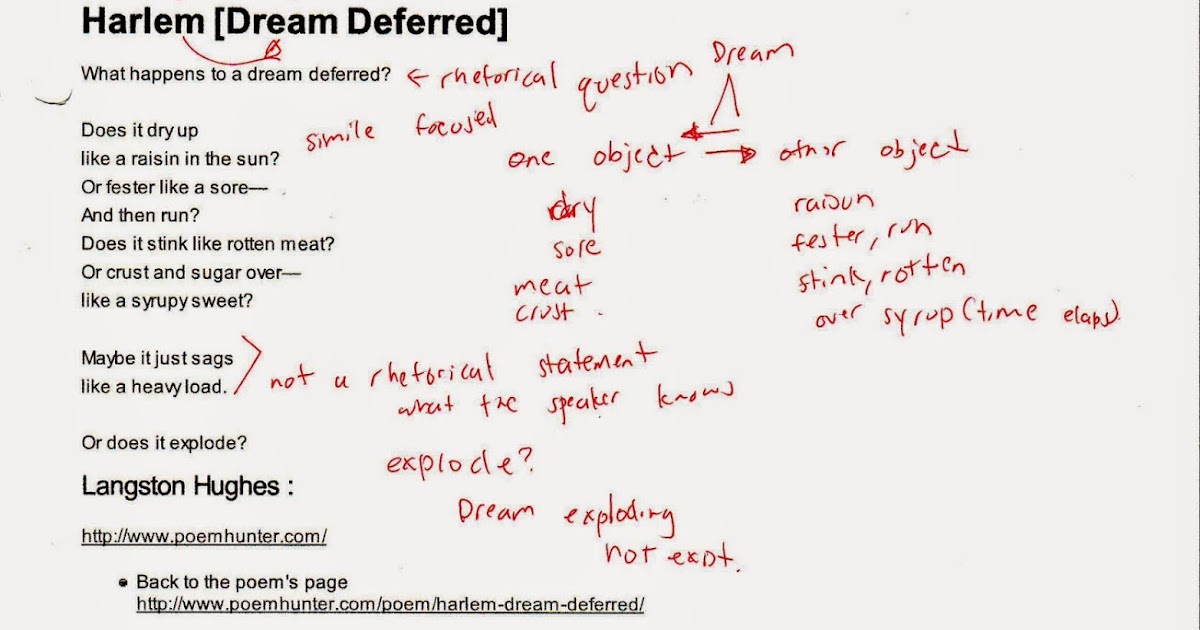 Harlem [Dream Deferred]
What happens to a dream deferred? ← rhetorical question
Dream
Does it dry up
like a raisin in the sun?
Or fester like a sore—
And then run?
Does it stink like rotten meat?
Or crust and sugar over—
like a syrupy sweet?
simile focused
one object → othr object
dry raisun
sore fester, run
meat stink, rotten
crust over syrup (time elaps)
Maybe it just sags
like a heavy load.
not a rhetorical statement
what the speaker knows
Or does it explode?
explode?
Dream exploding
not
Langston Hughes :
http://www.poemhunter.com/
• Back to the poem's page
http://www.poemhunter.com/poem/harlem-dream-deferred/